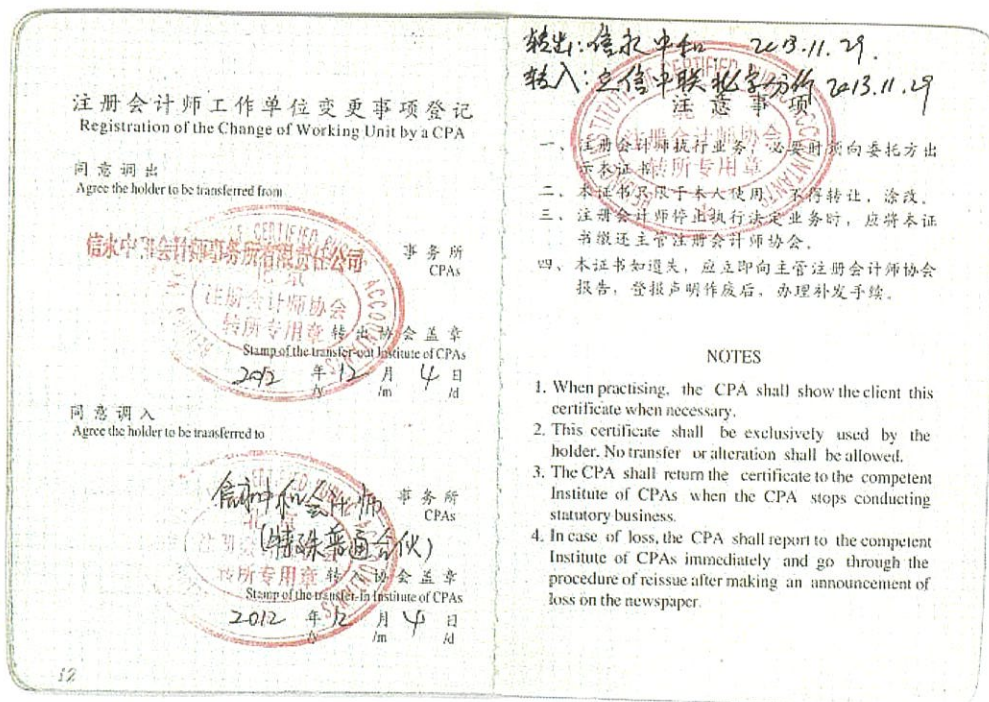 注册会计师工作单位变更事项登记
Registration of the Change of Working Unit by a CPA
同意调出
Agree the holder to be transferred from
信永中和会计师事务所有限责任公司
事务所
CPAs
CERTIFIED PUBLIC ACCOUNTANTS
北京
注册会计师协会
转所专用章
转出协会盖章
Stamp of the transfer-out Institute of CPAs
2012 年 12 月 4 日
/y /m /d
同意调入
Agree the holder to be transferred to
信永中和会计师 事务所
CPAs
(特殊普通合伙)
北京
注册会计师协会
转所专用章
转入协会盖章
Stamp of the transfer-in Institute of CPAs
2012 年 12 月 4 日
/y /m /d
12
转出:信永中和 2013.11.29.
转入:立信中联 2013.11.29
INSTITUTE OF CERTIFIED PUBLIC ACCOUNTANTS
注册会计师协会
转所专用章
注意事项
一、注册会计师执行业务,必要时须向委托方出
示本证书。
二、本证书只限于本人使用,不得转让,涂改。
三、注册会计师停止执行法定业务时,应将本证
书缴还主管注册会计师协会。
四、本证书如遗失,应立即向主管注册会计师协会
报告,登报声明作废后,办理补发手续。
NOTES
1. When practising, the CPA shall show the client this
certificate when necessary.
2. This certificate shall be exclusively used by the
holder. No transfer or alteration shall be allowed.
3. The CPA shall return the certificate to the competent
Institute of CPAs when the CPA stops conducting
statutory business.
4. In case of loss, the CPA shall report to the competent
Institute of CPAs immediately and go through the
procedure of reissue after making an announcement of
loss on the newspaper.